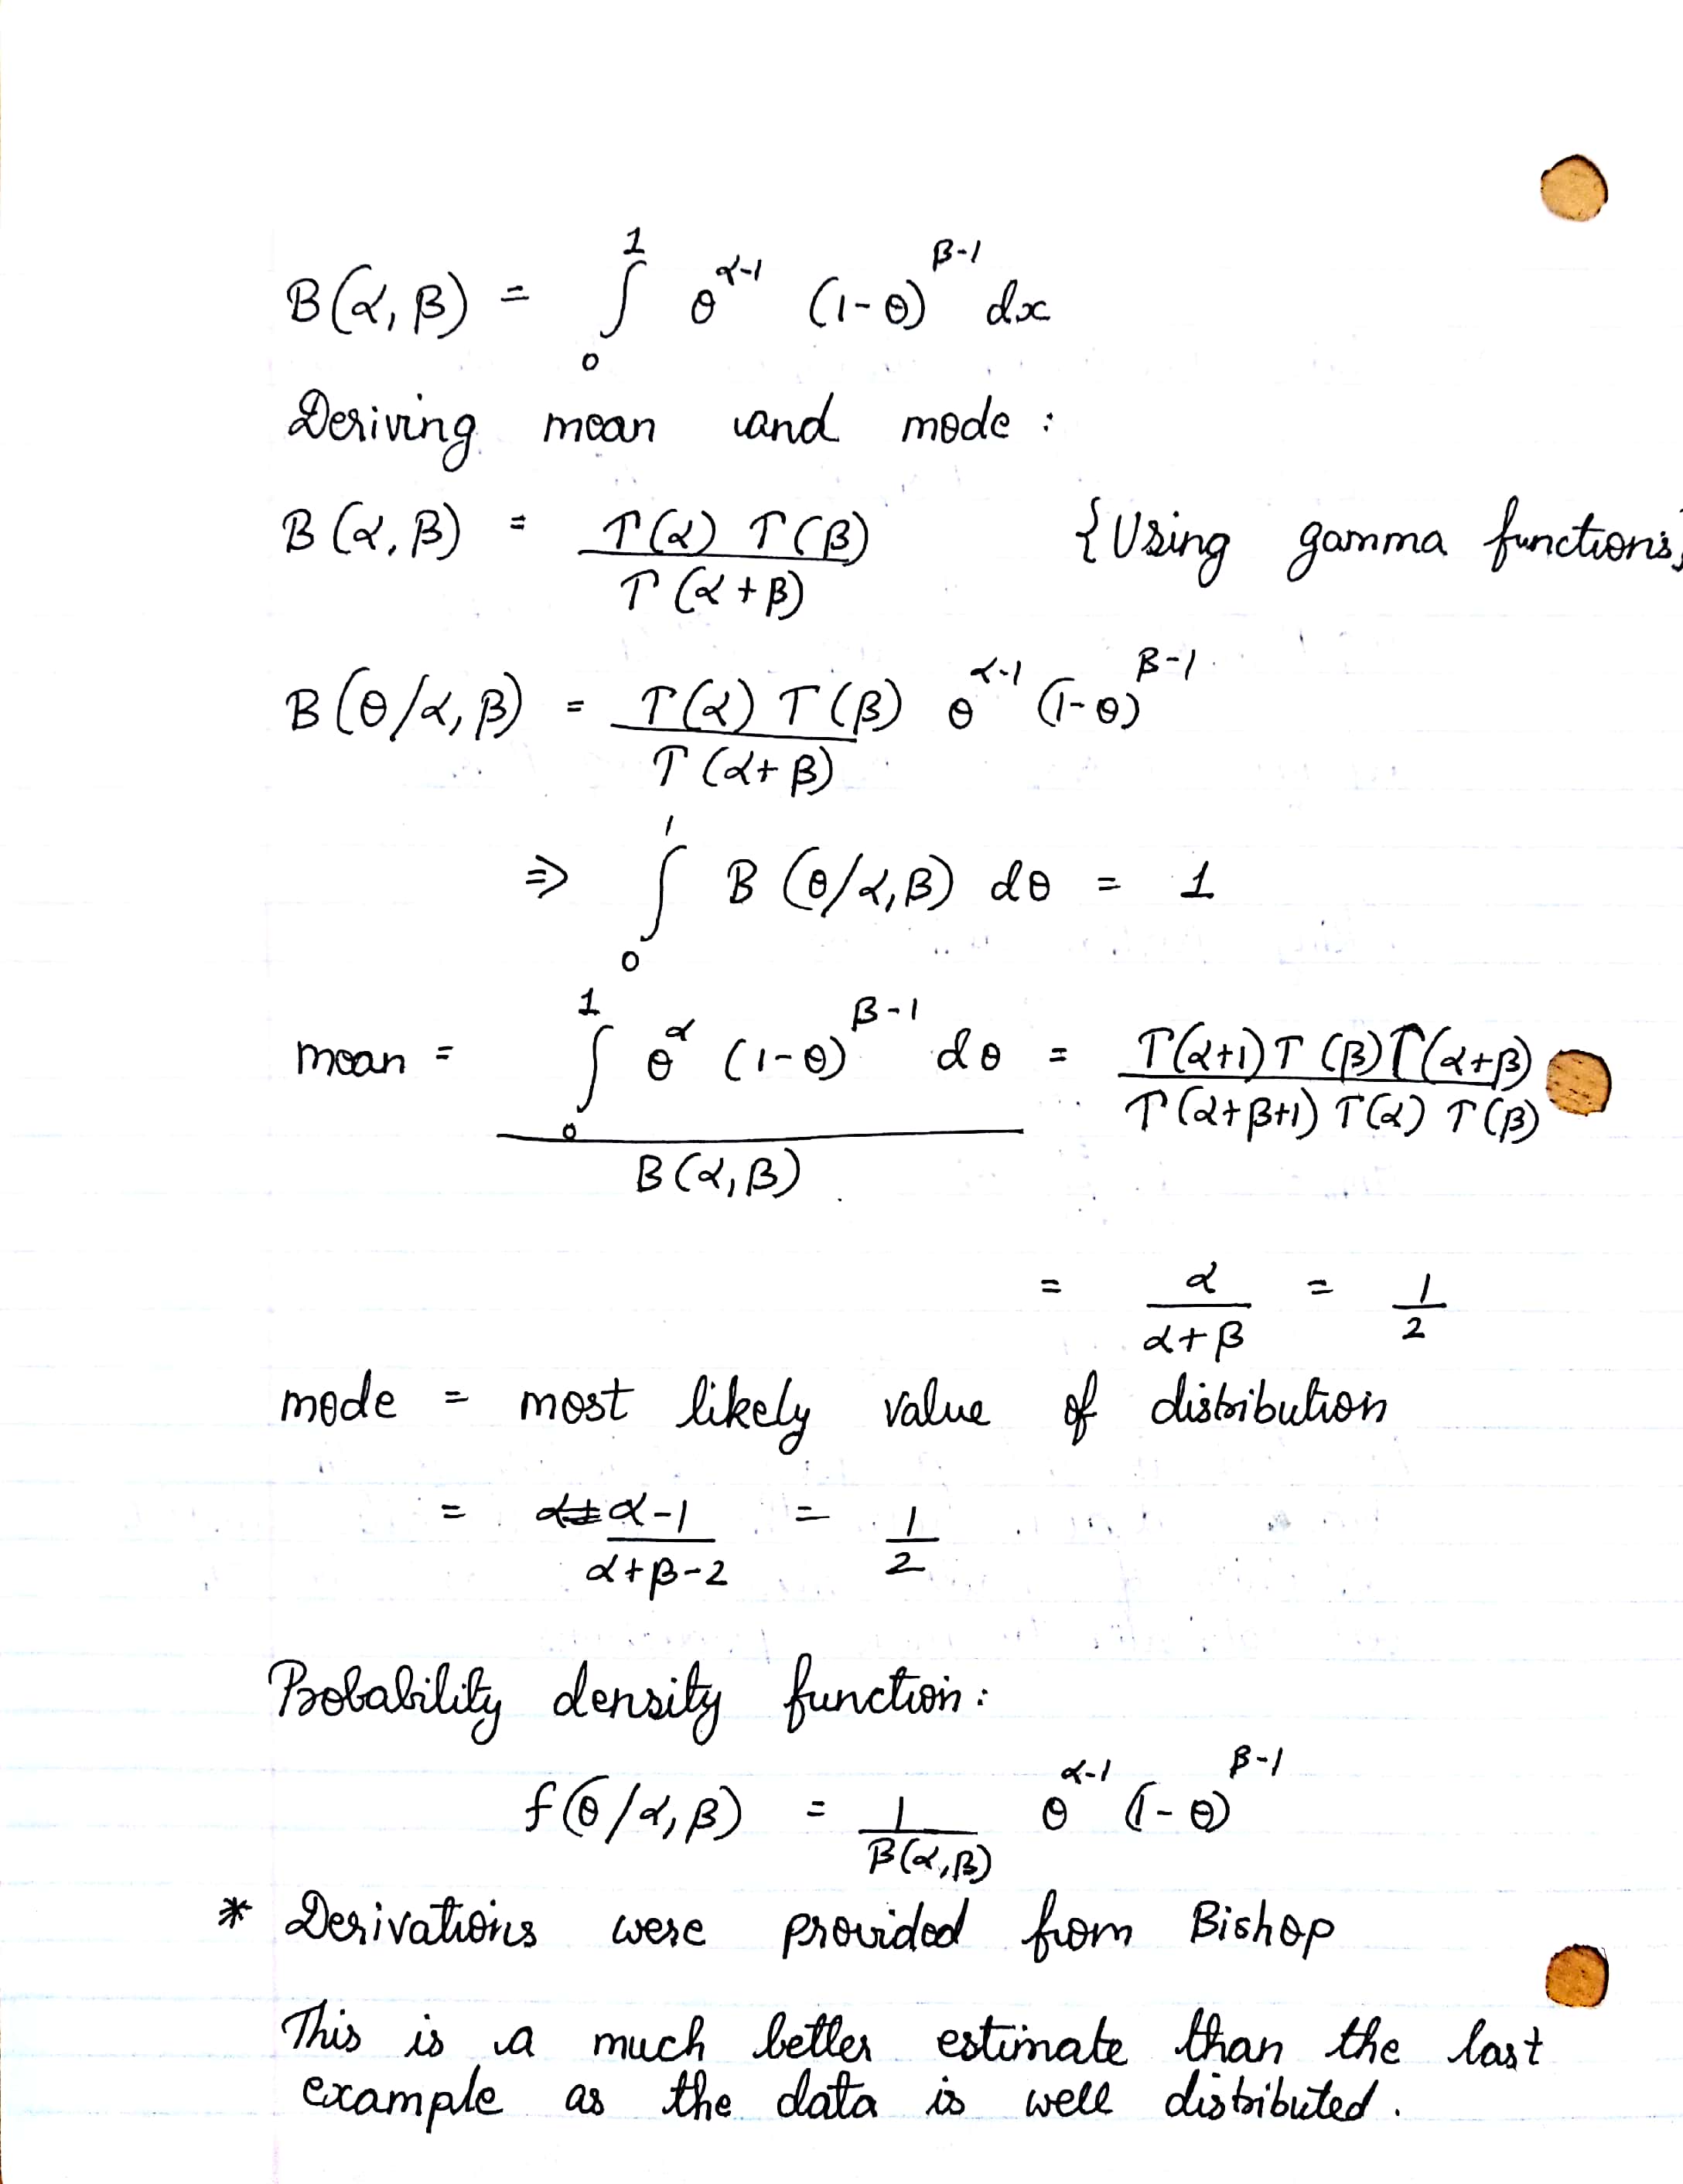 B(α, β) = ∫₀¹ θ^(α-1) (1-θ)^(β-1) dx
Deriving mean and mode :
B(α, β) = Γ(α) Γ(β) / Γ(α+β) {Using gamma functions}
B(θ/α, β) = Γ(α) Γ(β) / Γ(α+β) θ^(α-1) (1-θ)^(β-1)
⇒ ∫₀¹ B(θ/α, β) dθ = 1
mean = ∫₀¹ θ^α (1-θ)^(β-1) dθ / B(α, β) = Γ(α+1) Γ(β) Γ(α+β) / Γ(α+β+1) Γ(α) Γ(β)
= α / α+β = 1/2
mode = most likely value of distribution
= α-1 / α+β-2 = 1/2
Probability density function :
f(θ/α, β) = 1 / B(α, β) θ^(α-1) (1-θ)^(β-1)
* Derivations were provided from Bishop
This is a much better estimate than the last
example as the data is well distributed .